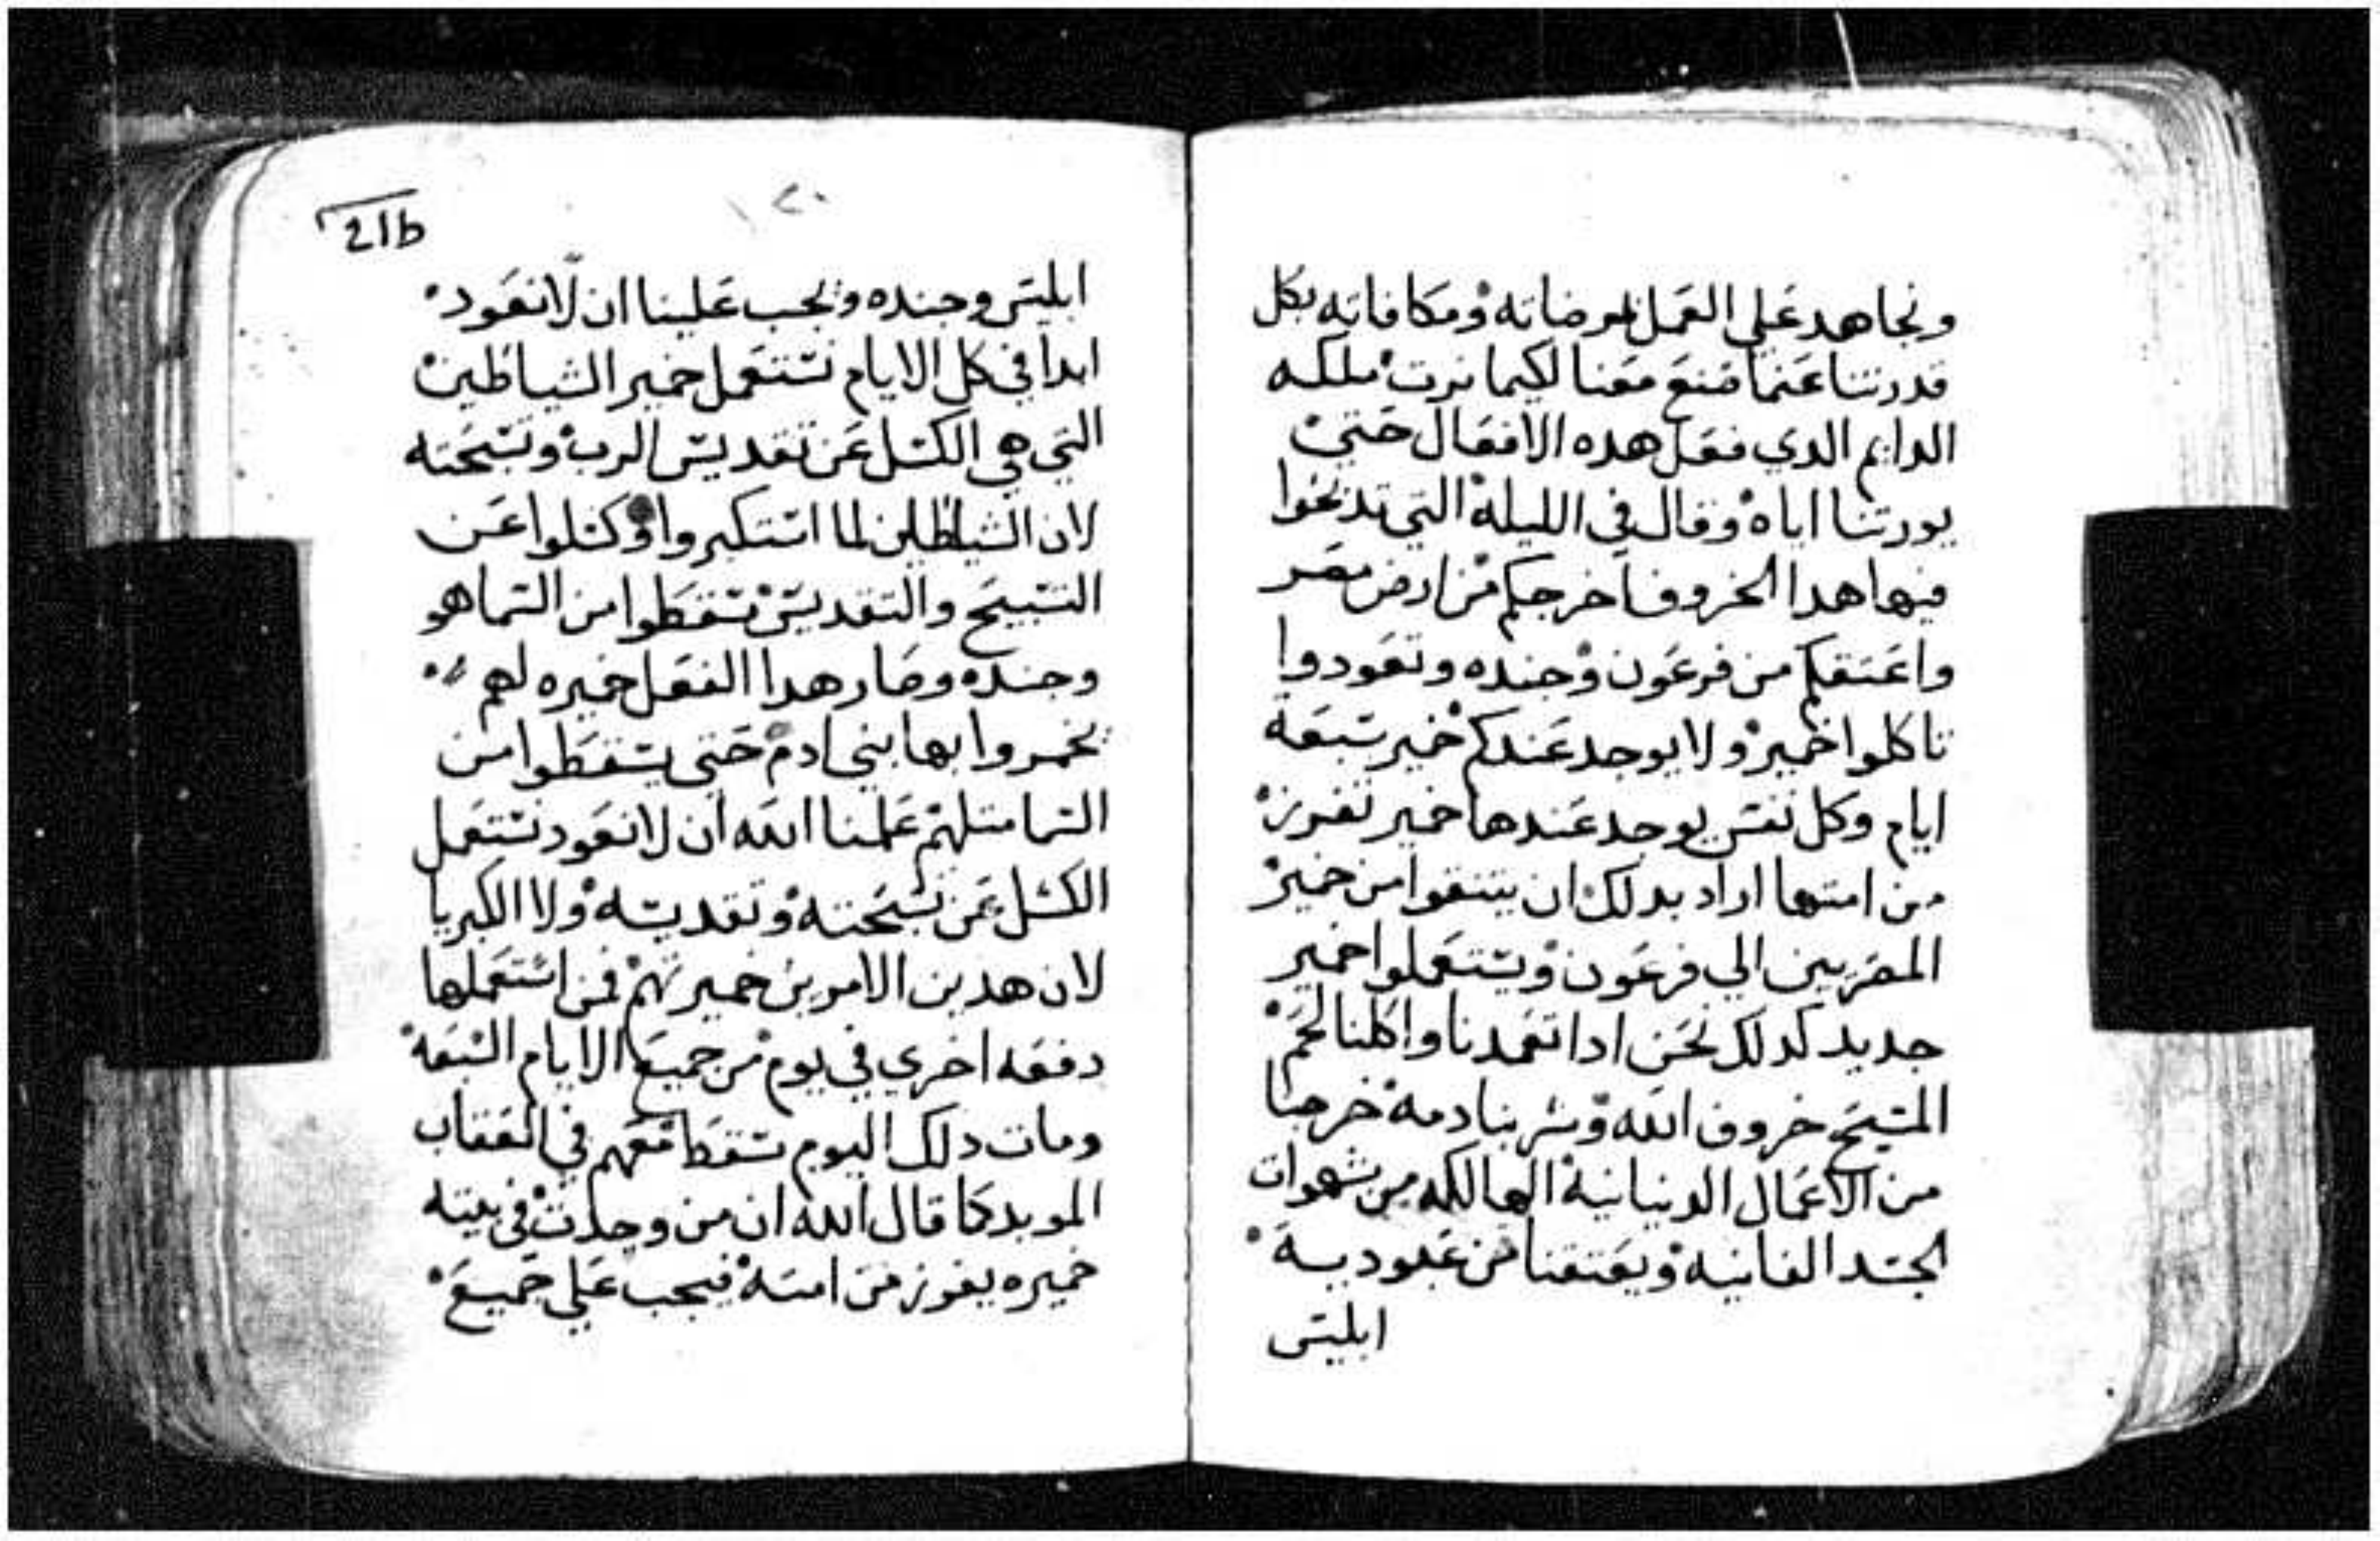 ونجاهد علي العمل لمرضاته ومكافاته بكل
قدرتنا عنما صنع معنا لكيما نرت ملكه
الدايم الدي فعل هده الافعال حتي
يورتنا اياه وقال في الليلة التي تدبحوا
فيها هدا الخروف اخرجكم من ارض مصر
واعتقكم من فرعون وجنده وتعودوا
تاكلوا خمير ولا يوجد عندكم خمير سبعة
ايام وكل نفس يوجد عندها خمير تفرز
من امتها اراد بدلك ان يتنقوا من خمير
المصريين الي فرعون ويستعملوا خمير
جديد كدلك نحن ادا تعمدنا واكلنا لحم
المسيح خروف الله وشربنا دمه خرجنا
من الاعمال الدنيانية الهالكه من شهوات
الجسد الفانيه ويعتقنا من عبوديـة
ابليس
21b
٢٠
ابليس وجنده ويجب علينا ان لا نعود
ابدا في كل الايام نستعمل خمير الشياطين
التي هي الكسل عن تقديس الرب وتسبحته
لان الشياطين لما استكبروا وكسلوا عن
التسبيح والتقديس سقطوا من السما هو
وجنده وصار هدا الفعل خميره لهم
يخمروا بها بني ادم حتي يسقطوا من
السما متلهم علمنا الله ان لا نعود نستعمل
الكسل عن تسبحته وتقديسه ولا الكبريا
لان هدين الامرين خميرتهم فمن استعملها
دفعه اخري في يوم من جميع الايام السبعة
ومات دلك اليوم سقط معهم في العقاب
الموبد كما قال الله ان من وجدت في بيته
خميره يفوز من امته فيجب علي جميع